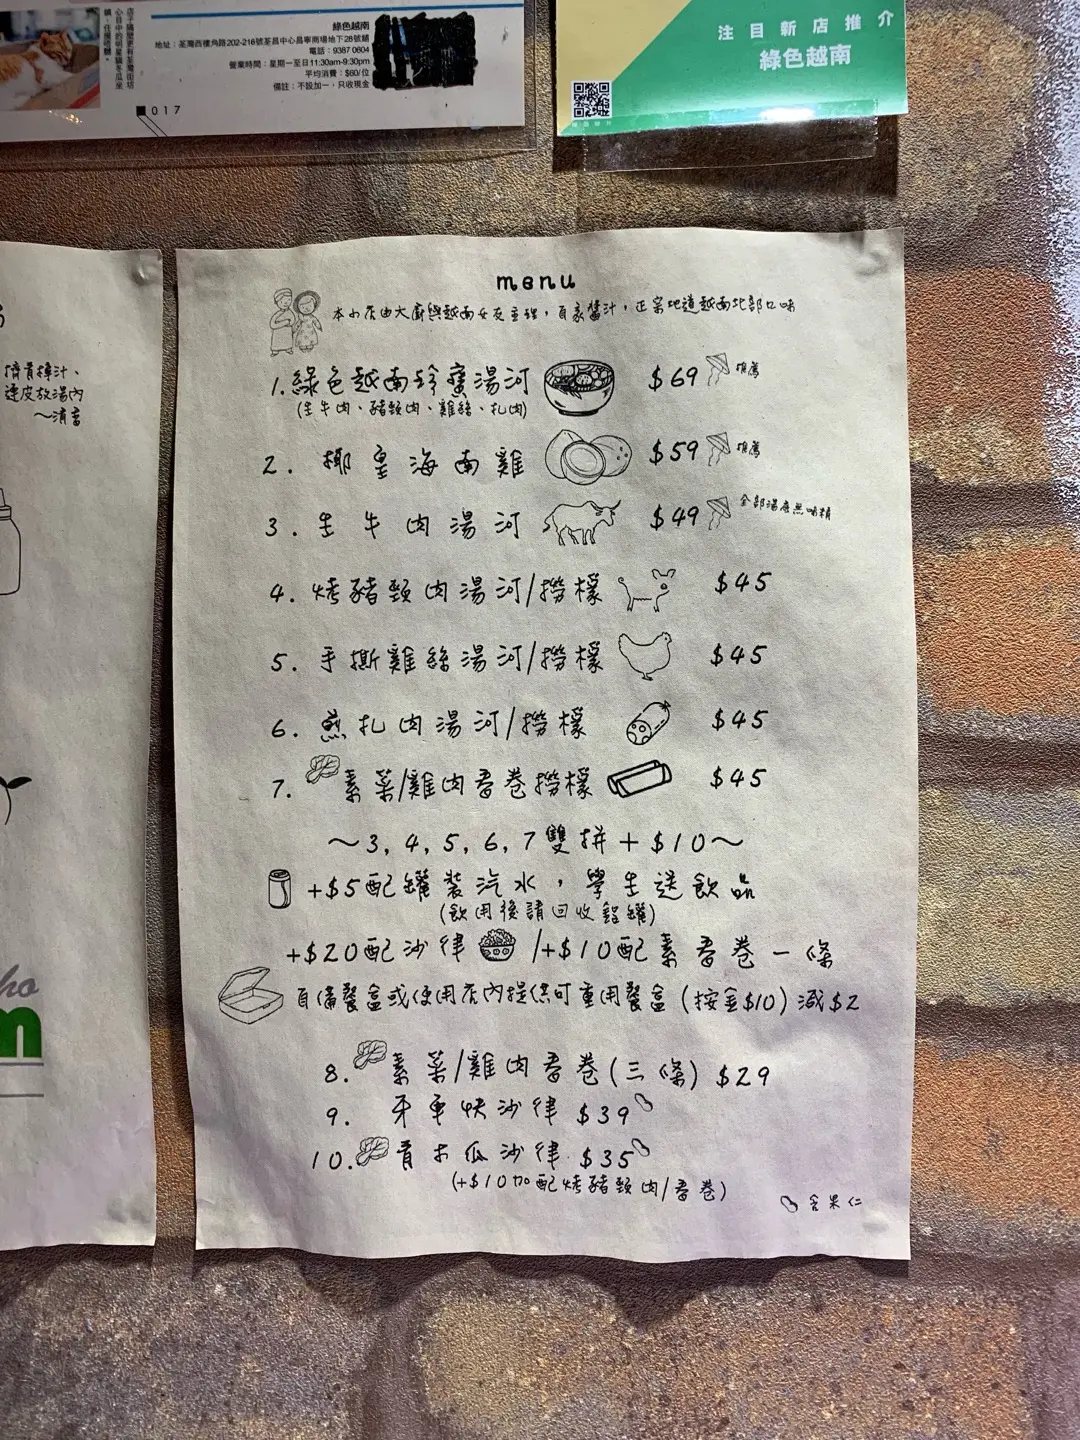 店子隔壁更有荃灣街坊
心目中的明星貓冬瓜坐
鎮，任摸唔嬲。
綠色越南
地址：荃灣西樓角路202-216號荃昌中心昌寧商場地下28號舖
電話：9387 0604
營業時間：星期一至日11:30am-9:30pm
平均消費：$60/位
備註：不設加一，只收現金
017
注目新店推介
綠色越南
擠青檸汁、
連皮放湯內
～清香
menu
本小店由大廚與越南女友主理，自家醬汁，正宗地道越南北部口味
1.綠色越南珍寶湯河 $69 推薦
(生牛肉、豬頸肉、雞絲、扎肉)
2. 椰皇海南雞 $59 推薦
3. 生牛肉湯河 $49 全部湯底無味精
4. 烤豬頸肉湯河/撈檬 $45
5. 手撕雞絲湯河/撈檬 $45
6. 煎扎肉湯河/撈檬 $45
7. 素菜/雞肉春卷撈檬 $45
～3, 4, 5, 6, 7雙拼＋$10～
+$5配罐裝汽水，學生送飲品
(飲用後請回收鋁罐)
+$20配沙律 /+$10配素春卷一條
自備餐盒或使用店內提供可重用餐盒(按金$10)減$2
8. 素菜/雞肉春卷(三條) $29
9. 牙車快沙律 $39
10. 青木瓜沙律 $35
(+$10加配烤豬頸肉/春卷)
含果仁
ho
m